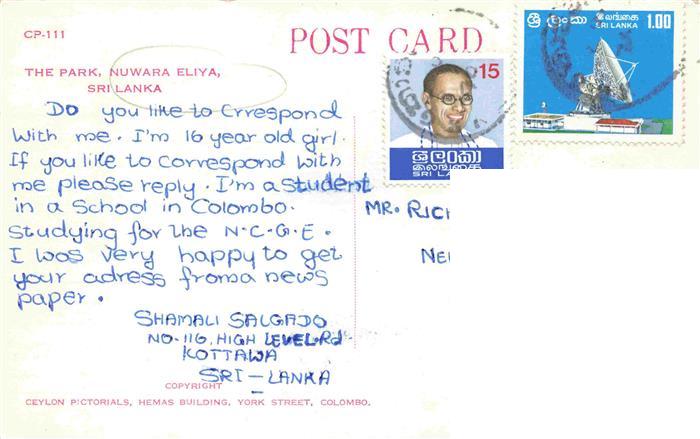 CP-111
POST CARD
THE PARK, NUWARA ELIYA,
SRI LANKA
Do you like to Crrespond
with me. I'm 16 year old girl.
If you like to correspond with
me please reply. I'm a student
in a School in Colombo.
Studying for the N.C.G.E.
I was very happy to get
your adress from a news
paper.
SHAMALI SALGADO
NO-116, HIGH LEVEL.Rd.
KOTTAWA
SRI-LANKA
COPYRIGHT
CEYLON PICTORIALS, HEMAS BUILDING, YORK STREET, COLOMBO.
15
ශ්‍රී ලංකා
இலங்கை
SRI LANKA
ශ්‍රී ලංකා இலங்கை 1.00
SRI LANKA
MR. RICH
NE